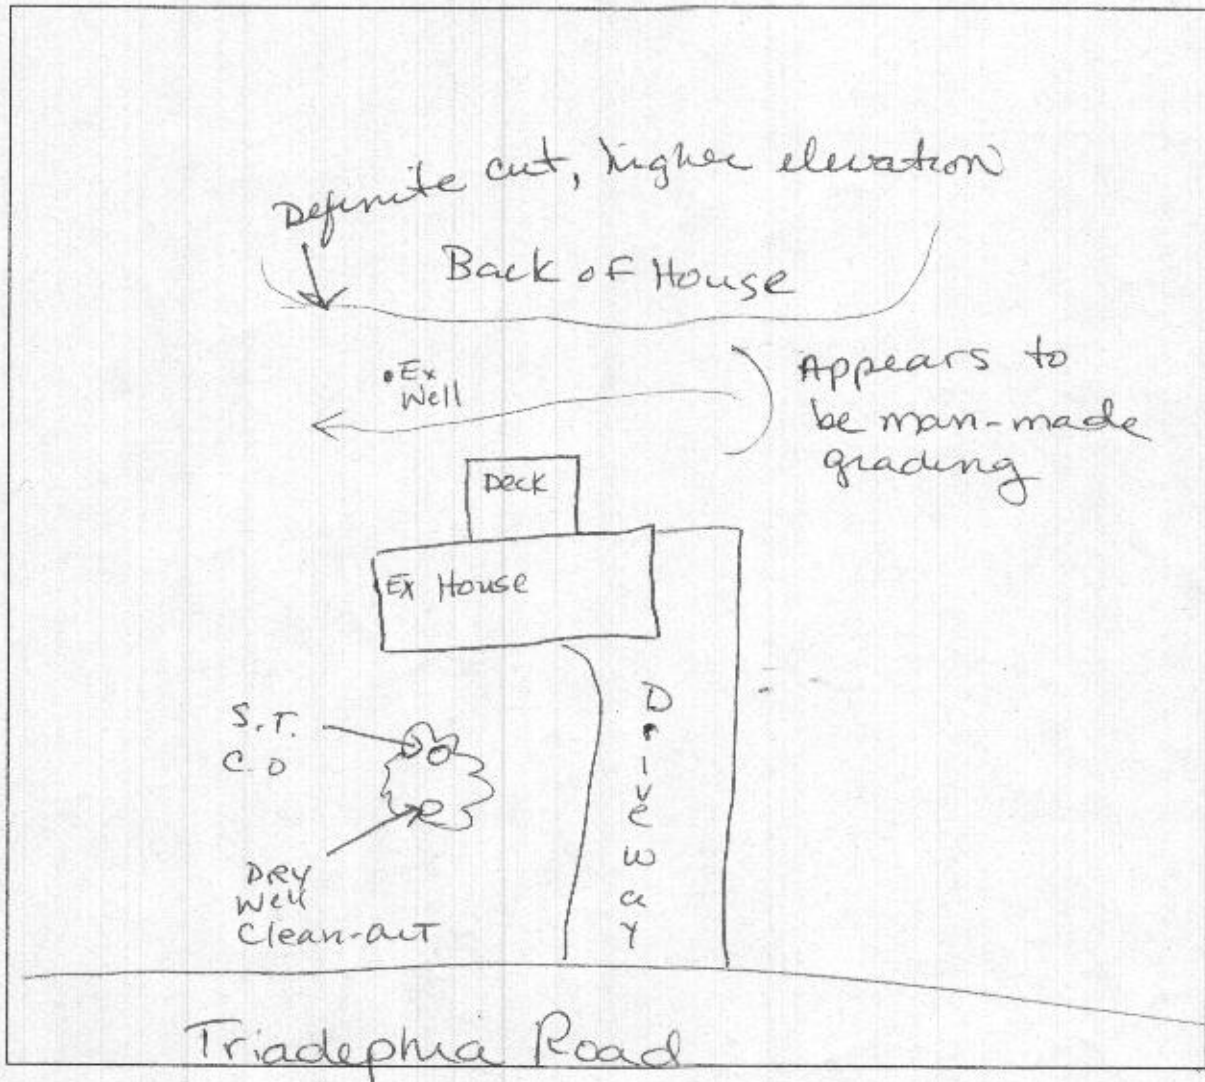 Definite cut, higher elevation
Back of House
• Ex
Well
Appears to
be man-made
grading
Deck
Ex House
Driveway
S.T.
C.O
DRY
Well
Clean-out
Triadephia Road